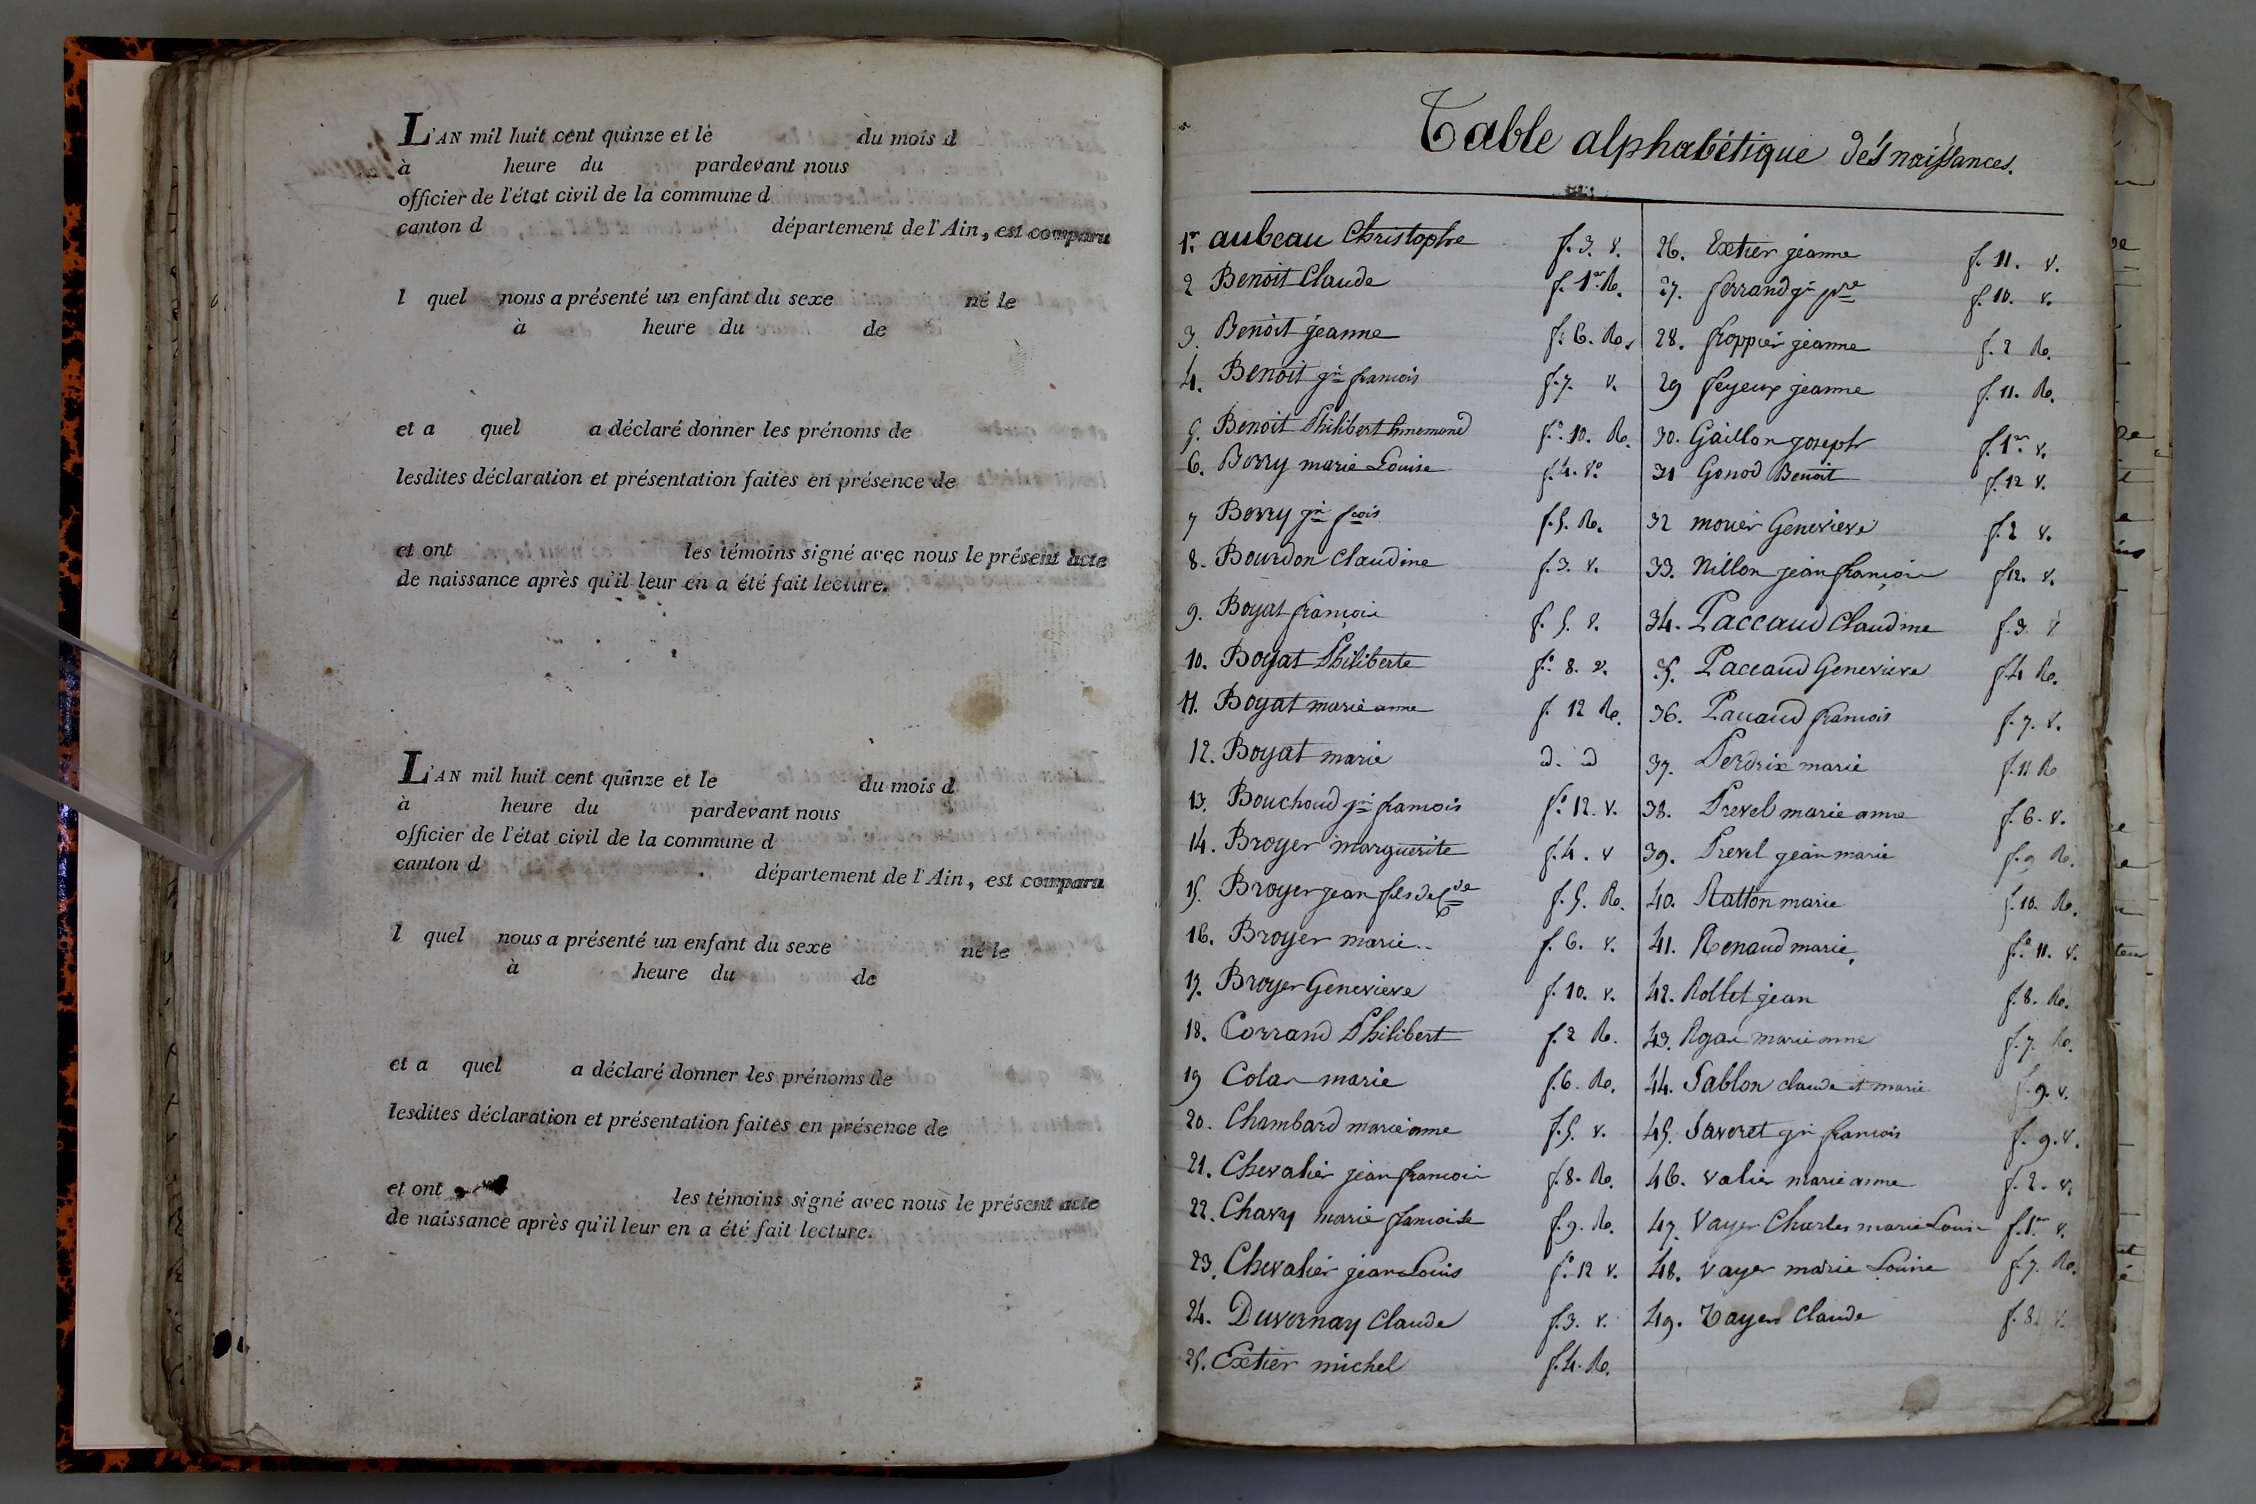 L'AN mil huit cent quinze et le du mois d
à heure du pardevant nous
officier de l'état civil de la commune d
canton d département de l'Ain, est comparu
l quel nous a présenté un enfant du sexe né le
à heure du de
et a quel a déclaré donner les prénoms de
lesdites déclaration et présentation faites en présence de
et ont les témoins signé avec nous le présent acte
de naissance après qu'il leur en a été fait lecture.
L'AN mil huit cent quinze et le du mois d
à heure du pardevant nous
officier de l'état civil de la commune d
canton d département de l'Ain, est comparu
l quel nous a présenté un enfant du sexe né le
à heure du de
et a quel a déclaré donner les prénoms de
lesdites déclaration et présentation faites en présence de
et ont les témoins signé avec nous le présent acte
de naissance après qu'il leur en a été fait lecture.
Table alphabétique des naissances.
1er. aubeau Christophe f. 3. v.
2 Benoit Claude f. 1er. Ro.
3. Benoit jeanne f. 6. Ro.
4. Benoit jn francois f. 7. v.
5. Benoit Philibert f.o 10. Ro.
6. Berry marie Louise f. 4. vo
7 Berry jn fcois f. 5. Ro.
8. Bourdon Claudine f. 3. v.
9. Boyat françois f. 5. v.
10. Boyat Philiberte f.o 8. v.
11. Boyat marie anne f. 12 Ro.
12. Boyat marie d. d
13. Bouchoud jn francois f.o 12. v.
14. Broyer marguerite f. 4. v
15. Broyer jean fils de f. 5. Ro.
16. Broyer marie.. f. 6. v.
17. Broyer Genevieve f. 10. v.
18. Corrand Philibert f. 2 Ro.
19 Colas marie f. 6. Ro.
20. Chambard marie anne f. 5. v.
21. Chevalier jean francois f. 8. Ro.
22. Chavy marie francoise f. 9. Ro.
23. Chevalier jean Louis f.o 12 v.
24. Duvernay Claude f. 3. v.
25. Extier michel f. 4. Ro.
26. Extier jeanne f. 11. v.
27. ferrand jn pre f. 10. v.
28. froppier jeanne f. 2 Ro.
29 feyeux jeanne f. 11. Ro.
30. Gaillon joseph f. 1er. v.
31 Gonod Benoit f. 12 v.
32 mouer Genevieve f. 2 v.
33. Nillon jean françois f 12. v.
34. Paccaud Claudine f. 3. v
35. Paccaud Genevieve f. 4 Ro.
36. Paccaud francois f. 7. v.
37. Perdrix marie f. 11 Ro
38. Prevel marie anne f. 6. v.
39. Prevel jean marie f. 9 Ro.
40. Ratton marie f. 10. Ro.
41. Renaud marie, f.o 11. v.
42. Rollet jean f. 8. Ro.
43. marie anne f. 7. Ro.
44. Sablon claude et marie f. 9. v.
45. Saveret jn francois f. 9. v.
46. valier marie anne f. 2. v.
47. Vayer Charles marie Louis f. 1er. v.
48. vayer marie Louise f. 7. Ro.
49. vayer Claude f. 8 v.